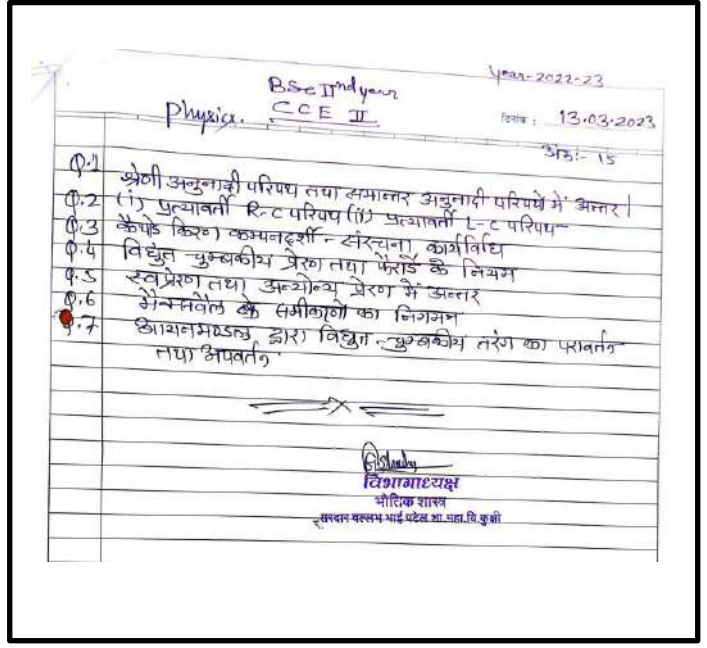 Year-2022-23
BSc IInd year
Physics. CCE II
दिनांक : 13.03.2023
अंक:- 15
Q.1 श्रेणी अनुनादी परिपथ तथा समान्तर अनुनादी परिपथों में अन्तर।
Q.2 (i) प्रत्यावर्ती R-C परिपथ (ii) प्रत्यावर्ती L-C परिपथ
Q.3 कैथोड किरण कम्पनदर्शी - संरचना, कार्यविधि
Q.4 विद्युत चुम्बकीय प्रेरण तथा फैराडे के नियम
Q.5 स्वप्रेरण तथा अन्योन्य प्रेरण में अन्तर
Q.6 मैक्सवेल के समीकरणों का निगमन
Q.7 आयनमण्डल द्वारा विद्युत-चुम्बकीय तरंग का परावर्तन
तथा अपवर्तन
विभागाध्यक्ष
भौतिक शास्त्र
सरदार वल्लभ भाई पटेल शा.महा.वि.कुक्षी